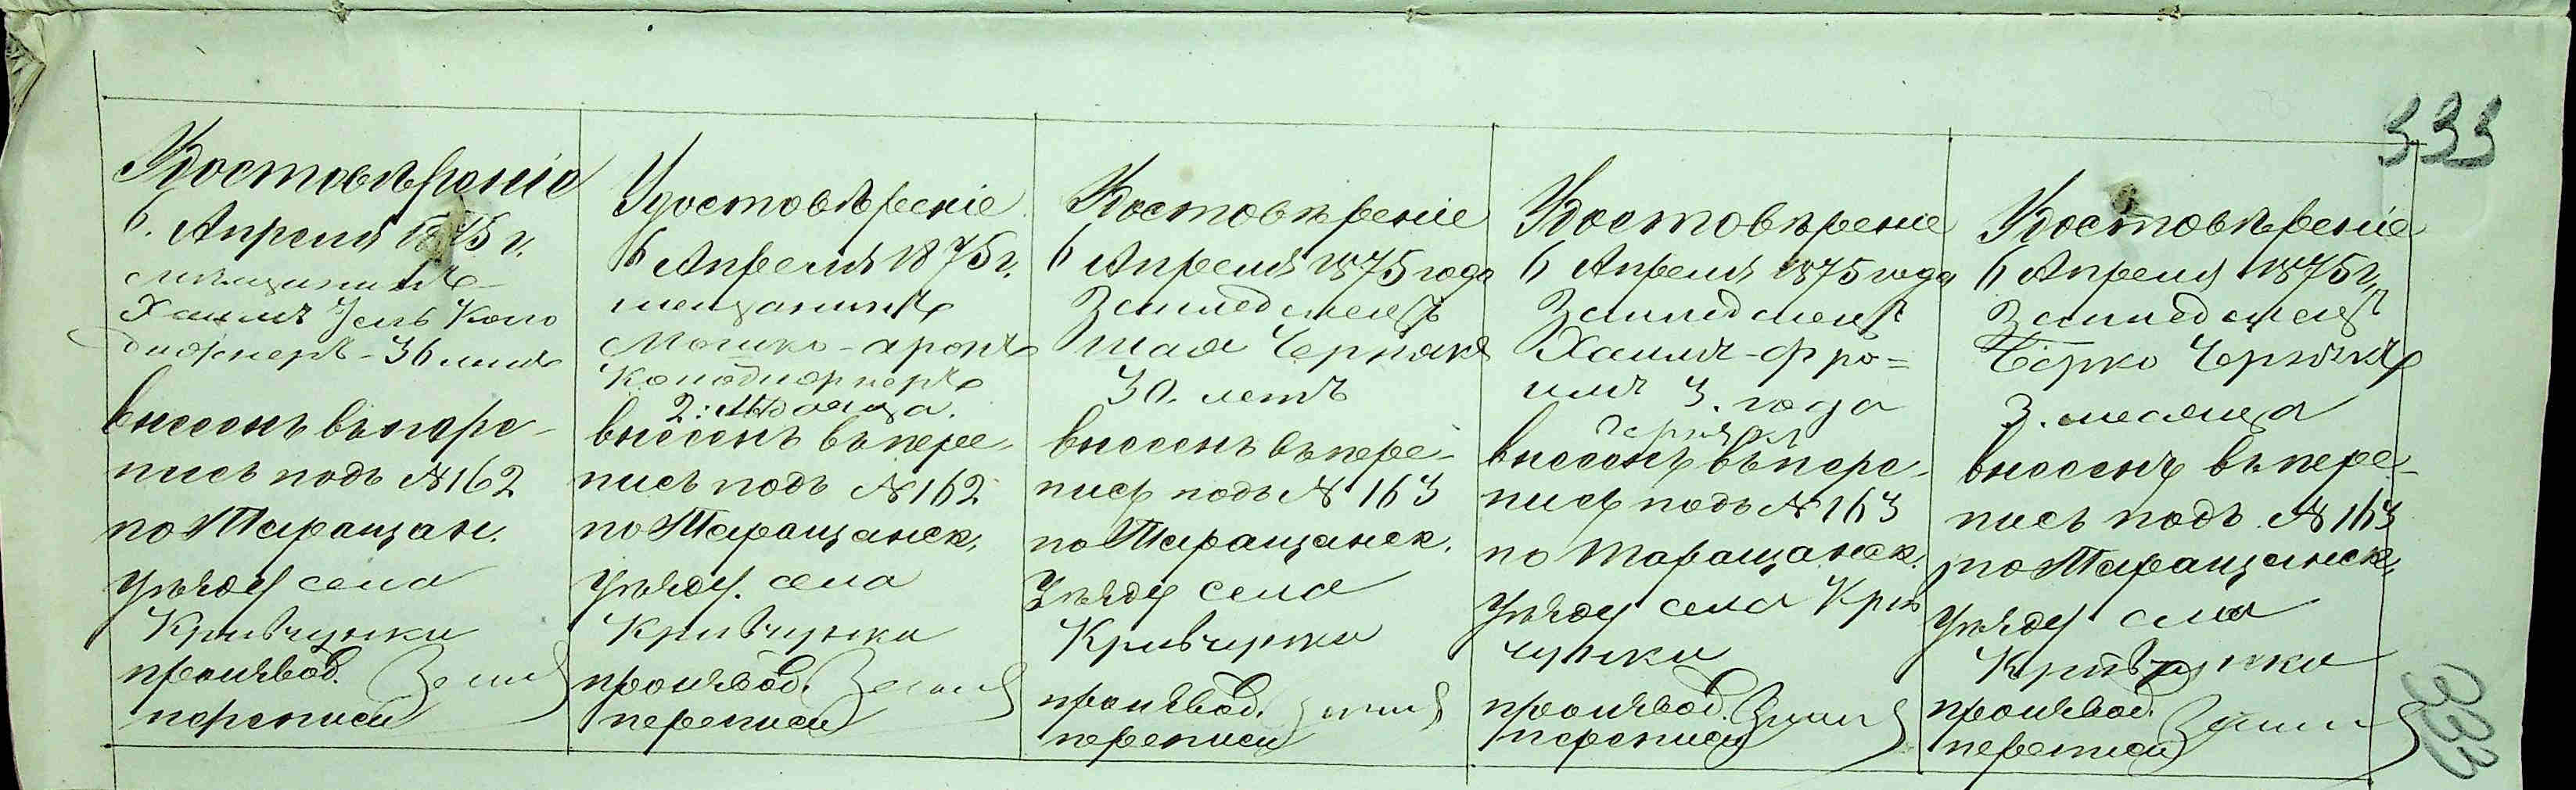 533
Удостовѣреніе
6. Апреля 1875 г.
мѣщанинъ
Хаимъ Усль Коло
днорнеръ - 36 лѣтъ
внесенъ въ пере-
пись подъ № 162
по Таращан.
уѣзду села
Кривчунки
производ.
переписи
Удостовѣреніе
6 Апреля 1875 г.
мещанинъ
Мошко-Аронъ
Колодморнеръ
2: Мѣсяца.
внесенъ въ пере-
пись подъ № 162
по Таращанск.
уѣзду. села
Кривчунки
производ.
переписи
Удостовѣреніе
6 Апреля 1875 года
Земледелецъ
Шая Чернякъ
30. летъ
внесенъ въ пере-
пись подъ № 163
по Таращанск.
Уѣзду села
Кривчунки
производ.
переписи
Удостовѣрение
6 Апреля 1875 года
Земледелецъ
Хаимъ-Фро=
имъ 3. года
Чернякъ
внесенъ въ пере-
пись подъ № 163
по Таращанск.
уѣзду села Крив
чунки
производ.
переписи
Удостовѣреніе
6 Апреля 1875 г.
Земледелецъ
Берко Чернякъ
3. месяца
внесенъ въ пере-
пись подъ № 163
по Таращанск.
уѣзду села
Кривчунки
производ.
переписи